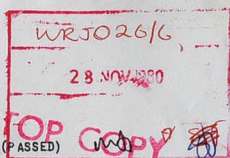 WRJ026/6
28 NOV 1980
TOP COPY
(PASSED)